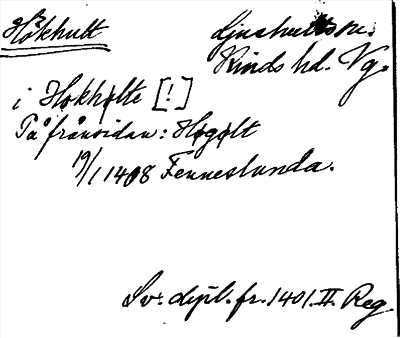 Hökhult
Ljushults sn.
Kinds hd. Vg.
i Høkhølte [!]
På frånsidan: Høgølt
19/1 1408 Fenneslunda.
Sv. dipl. fr. 1401. II. Reg